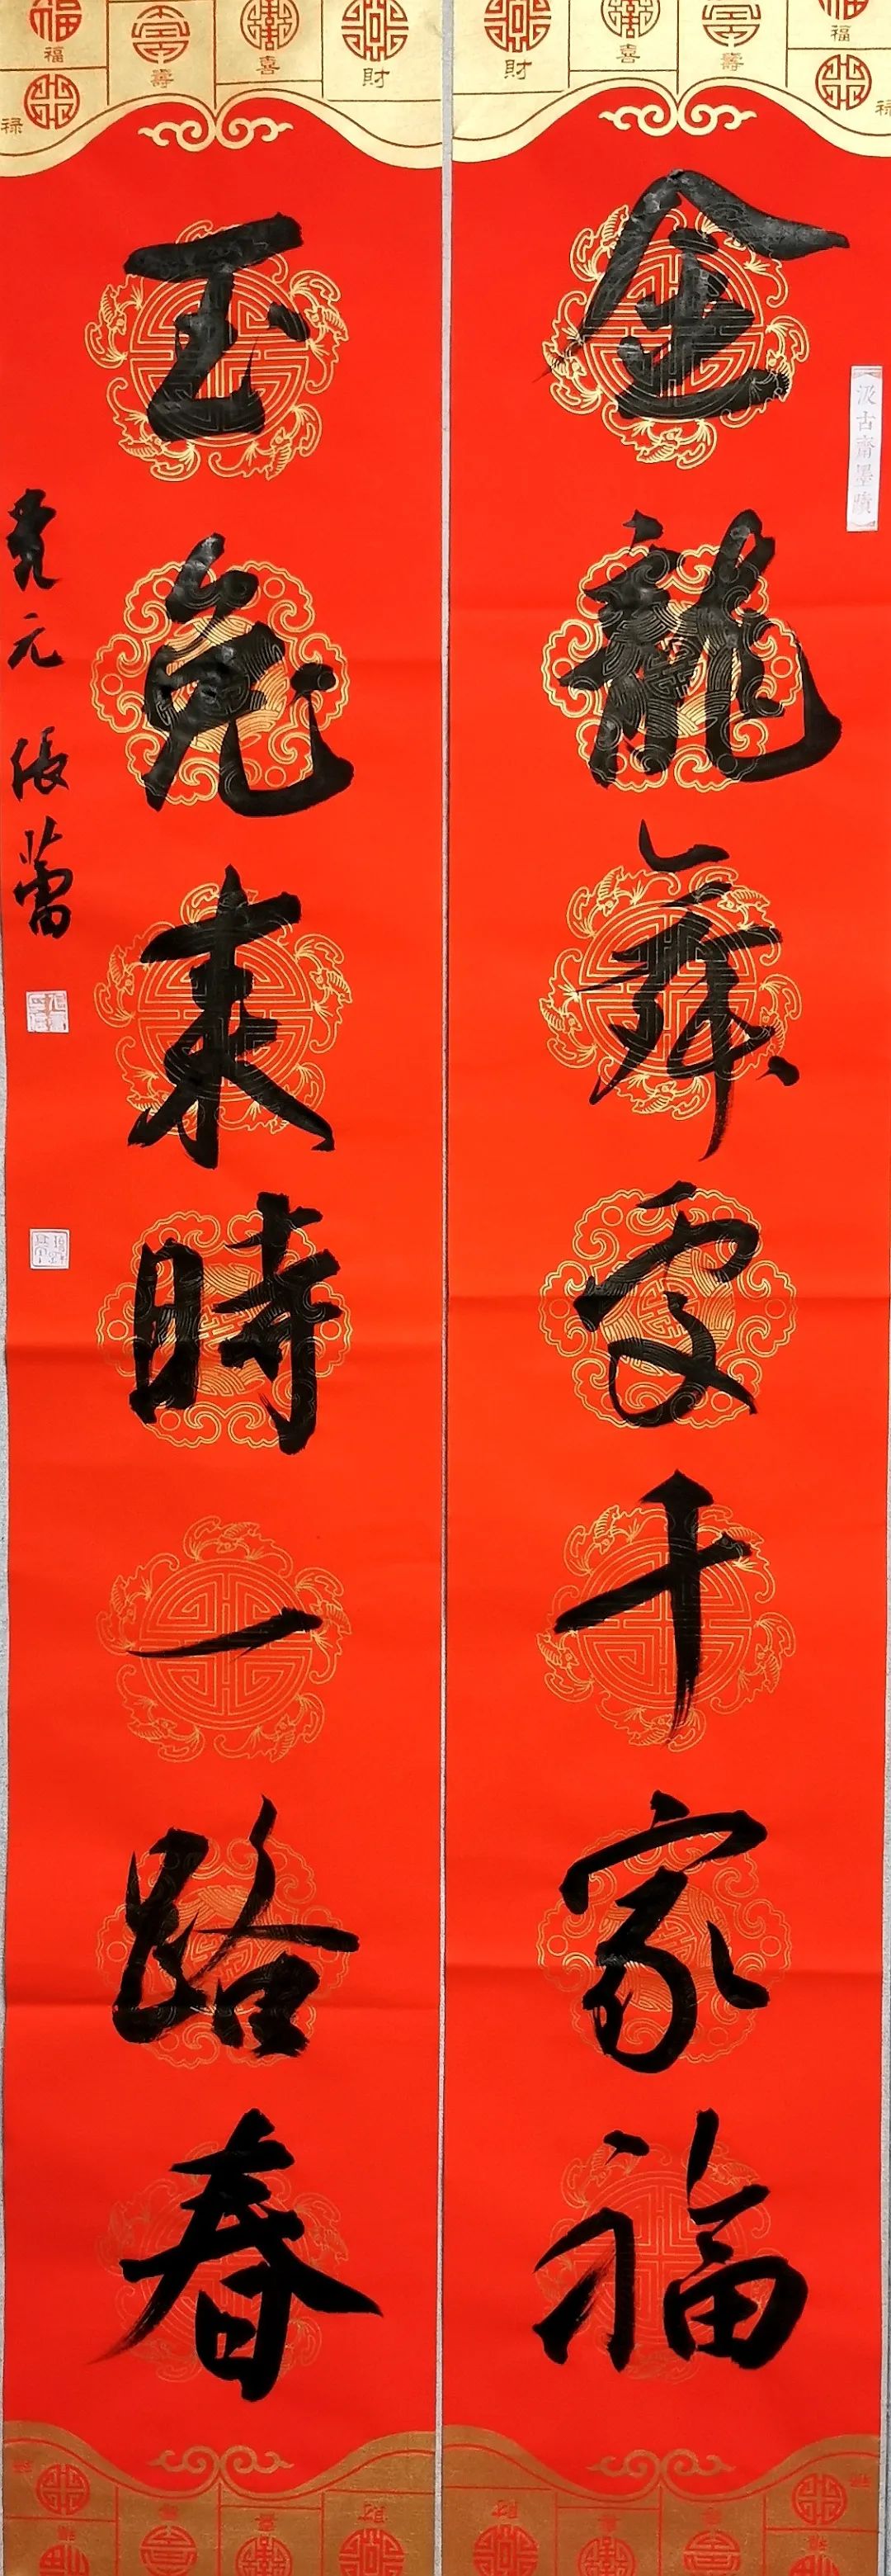 福 禄 壽 喜 財
財 喜 壽 福 禄
汲古齋墨蹟
金龍舞處千家福
玉兔來時一路春
元 張蕾